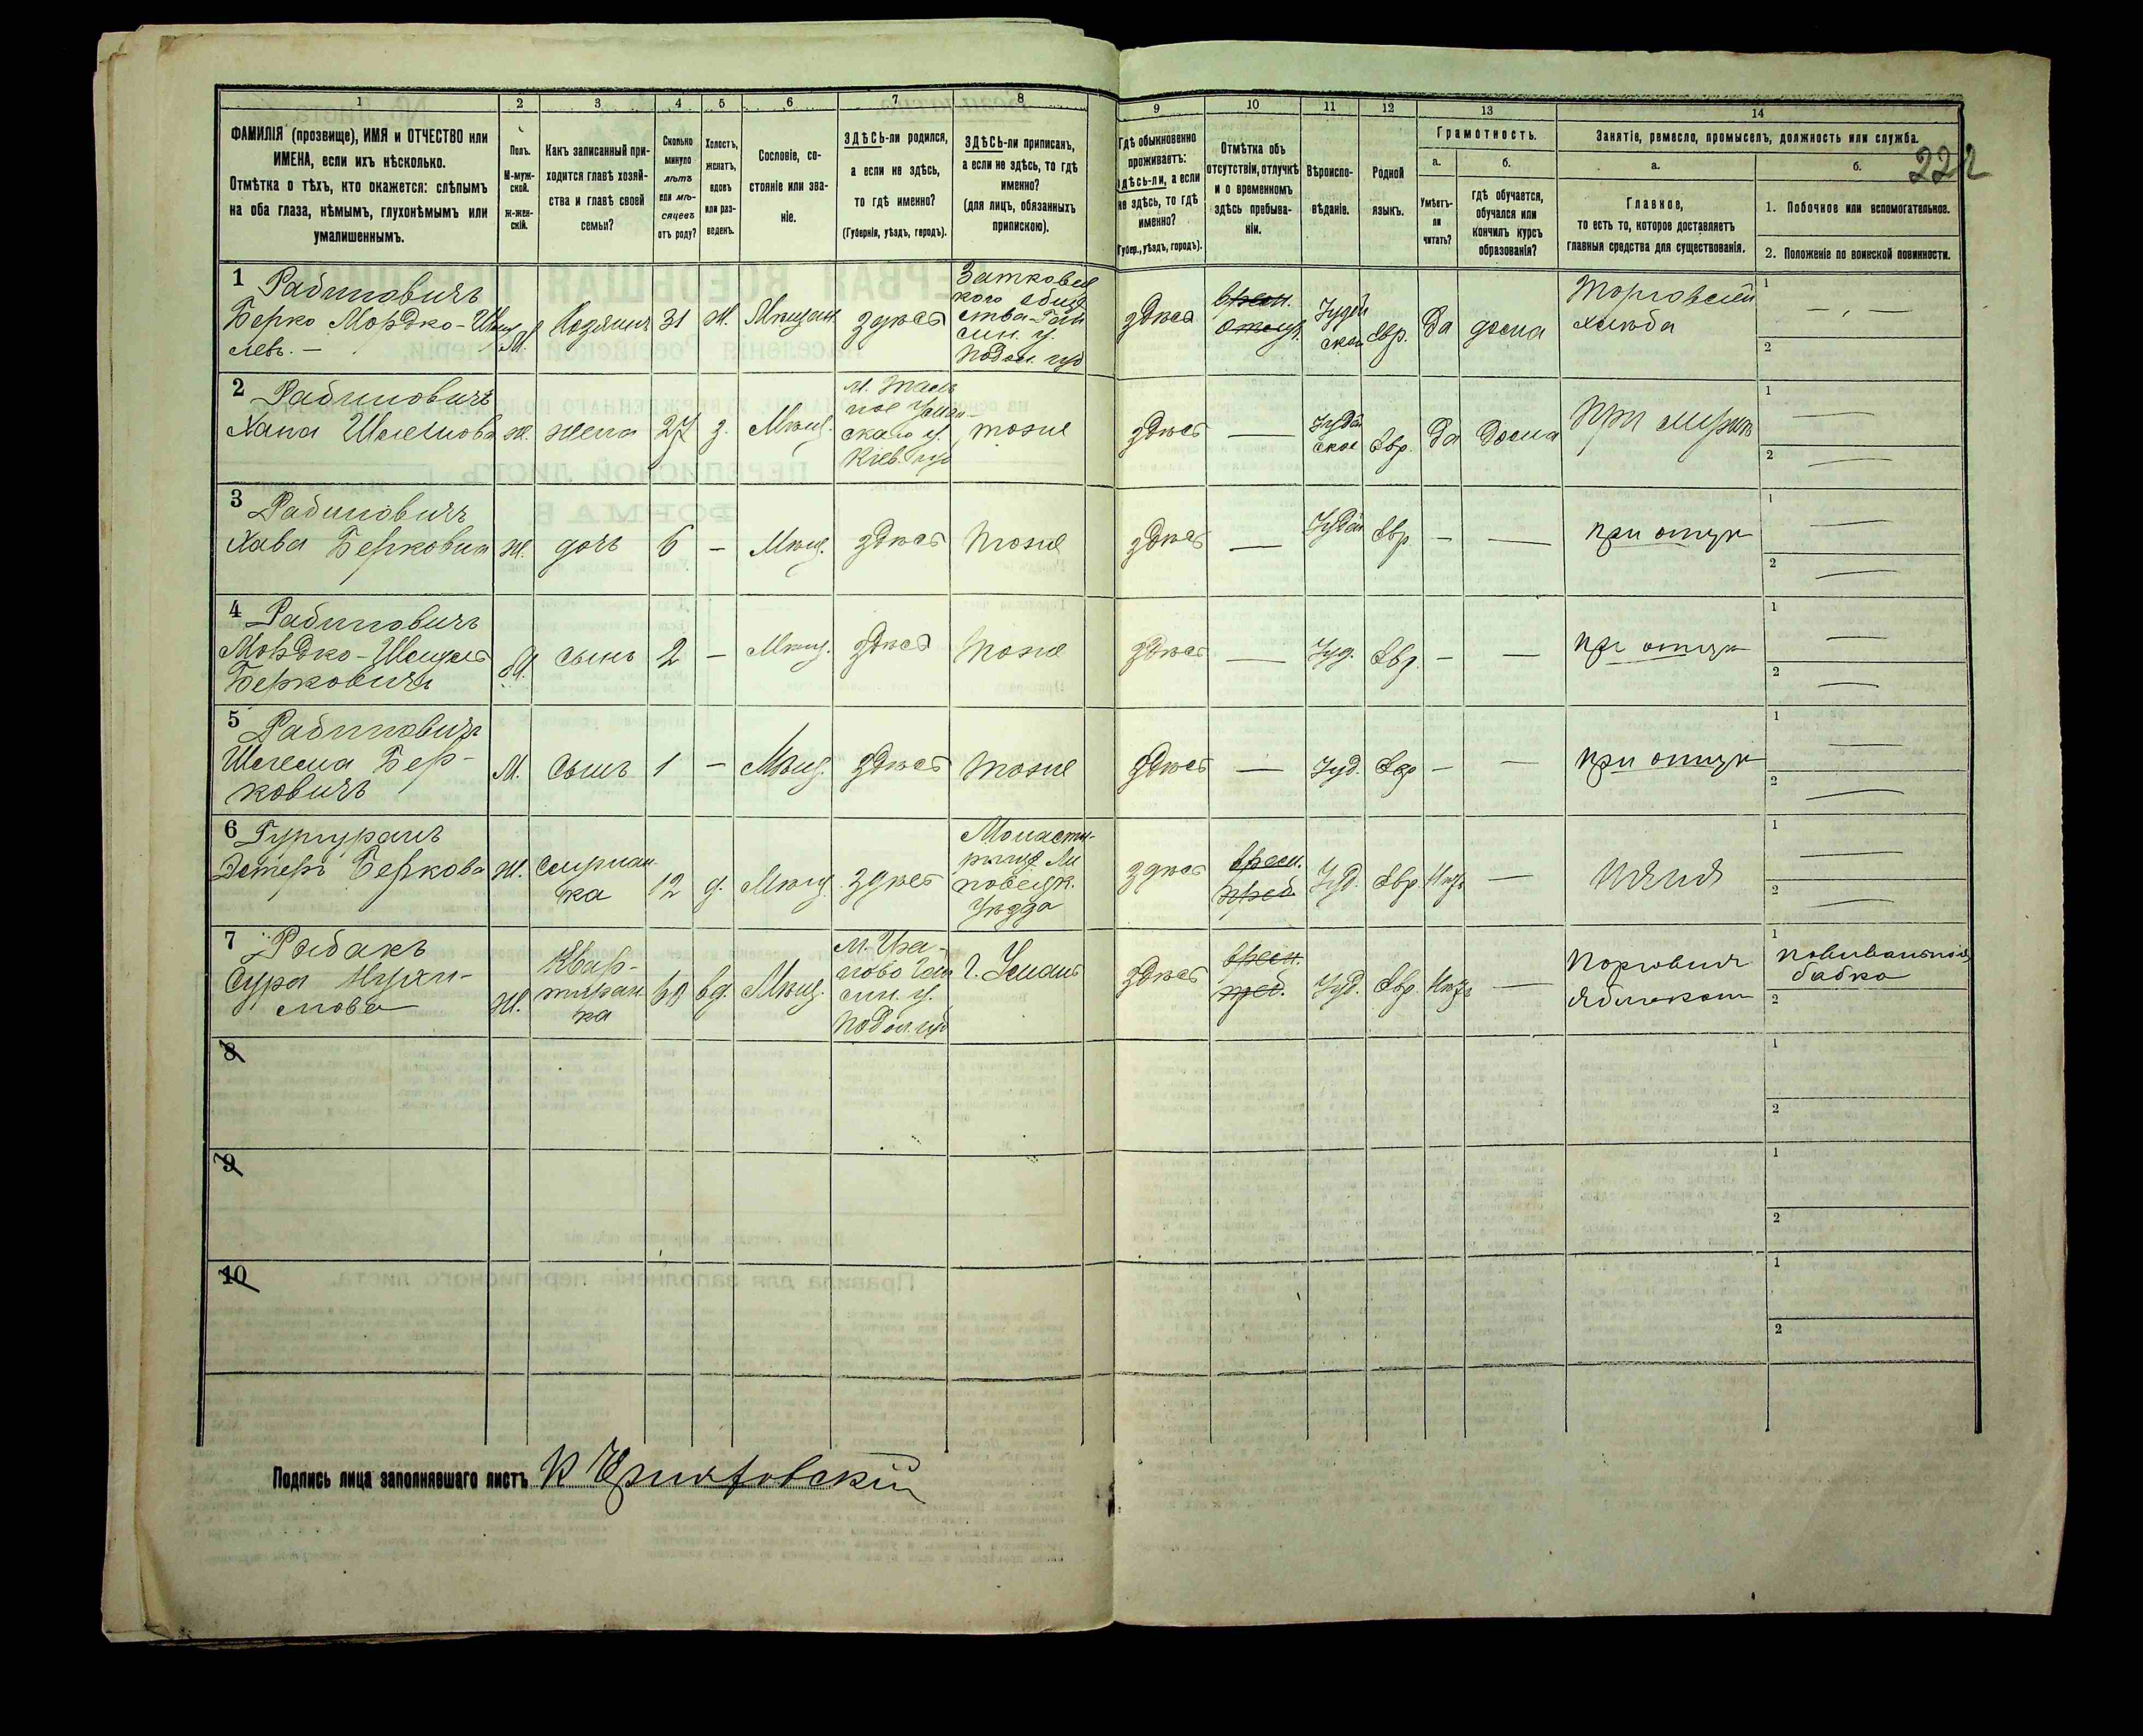 1
2
3
4
5
6
7
8
9
10
11
12
13
14
ФАМИЛІЯ (прозвище), ИМЯ и ОТЧЕСТВО или
ИМЕНА, если ихъ нѣсколько.
Отмѣтка о тѣхъ, кто окажется: слѣпымъ
на оба глаза, нѣмымъ, глухонѣмымъ или
умалишеннымъ.
Полъ.
М-муж-
ской.
ж-жен-
скій.
Какъ записанный при-
ходится главѣ хозяй-
ства и главѣ своей
семьи?
Сколько
минуло
лѣтъ
или мѣ-
сяцевъ
отъ роду?
Холостъ,
женатъ,
вдовъ
или раз-
веденъ.
Сословіе, со-
стояніе или зва-
ніе.
ЗДѢСЬ-ли родился,
а если не здѣсь,
то гдѣ именно?
(Губернія, уѣздъ, городъ).
ЗДѢСЬ-ли приписанъ,
а если не здѣсь, то гдѣ
именно?
(для лицъ, обязанныхъ
припискою).
Гдѣ обыкновенно
проживаетъ:
здѣсь-ли, а если
не здѣсь, то гдѣ
именно?
(Губер., уѣздъ, городъ).
Отмѣтка объ
отсутствіи, отлучкѣ
и о временномъ
здѣсь пребыва-
ніи.
Вѣроиспо-
вѣданіе.
Родной
языкъ.
Грамотность.
а.
Умѣетъ-
ли
читать?
б.
гдѣ обучается,
обучался или
кончилъ курсъ
образованія?
Занятіе, ремесло, промыселъ, должность или служба.
а.
Главное,
то есть то, которое доставляетъ
главныя средства для существованія.
б.
222
1. Побочное или вспомогательное.
2. Положеніе по воинской повинности.
1 Рабиновичъ
Берко Мордко-
левъ.
М.
Хозяинъ
31
ж.
Мѣщан.
здѣсь
ства-Гай
син. у.
Подол. губ
здѣсь
врем.
отсут.
Іудей
ское
Евр.
да
дома
Торговецъ
хлѣба
1
2
2 Рабиновичъ
Хана
ж.
жена
27
з.
Мѣщ.
м. Таль
ное Уман-
скаго у.
Кіев. губ
тоже
здѣсь
Іудей
ское
Евр.
да
дома
При мужѣ
1
2
3 Рабиновичъ
Хава Берковна
ж.
дочь
6
Мѣщ.
здѣсь
тоже
здѣсь
Іудей
Евр.
при отцѣ
1
2
4 Рабиновичъ
Мордко-
Берковичъ
М.
сынъ
2
Мѣщ.
здѣсь
тоже
здѣсь
Іуд.
Евр.
при отцѣ
1
2
5 Рабиновичъ
Шлема Бер-
ковичъ
М.
сынъ
1
Мѣщ.
здѣсь
тоже
здѣсь
Іуд.
Евр
при отцѣ
1
2
6
Эстеръ Беркова
ж.
Служан
ка
12
д.
Мѣщ.
здѣсь
Монасты-
рище Ли
повецк.
Уѣзда
здѣсь
врем.
преб.
Іуд.
Евр
Нѣтъ
Няня
1
2
7 Рыбакъ
Сура
ж.
Квар-
тиран
ка
60
вд.
Мѣщ.
м. Гра-
ново Гай
син. у.
Подол. губ
г. Умань
здѣсь
врем.
преб.
Іуд.
Евр.
Нѣтъ
Торговля
яблоками
1
повивальная
бабка
2
8
1
2
9
1
2
10
1
2
Подпись лица заполнявшаго листъ